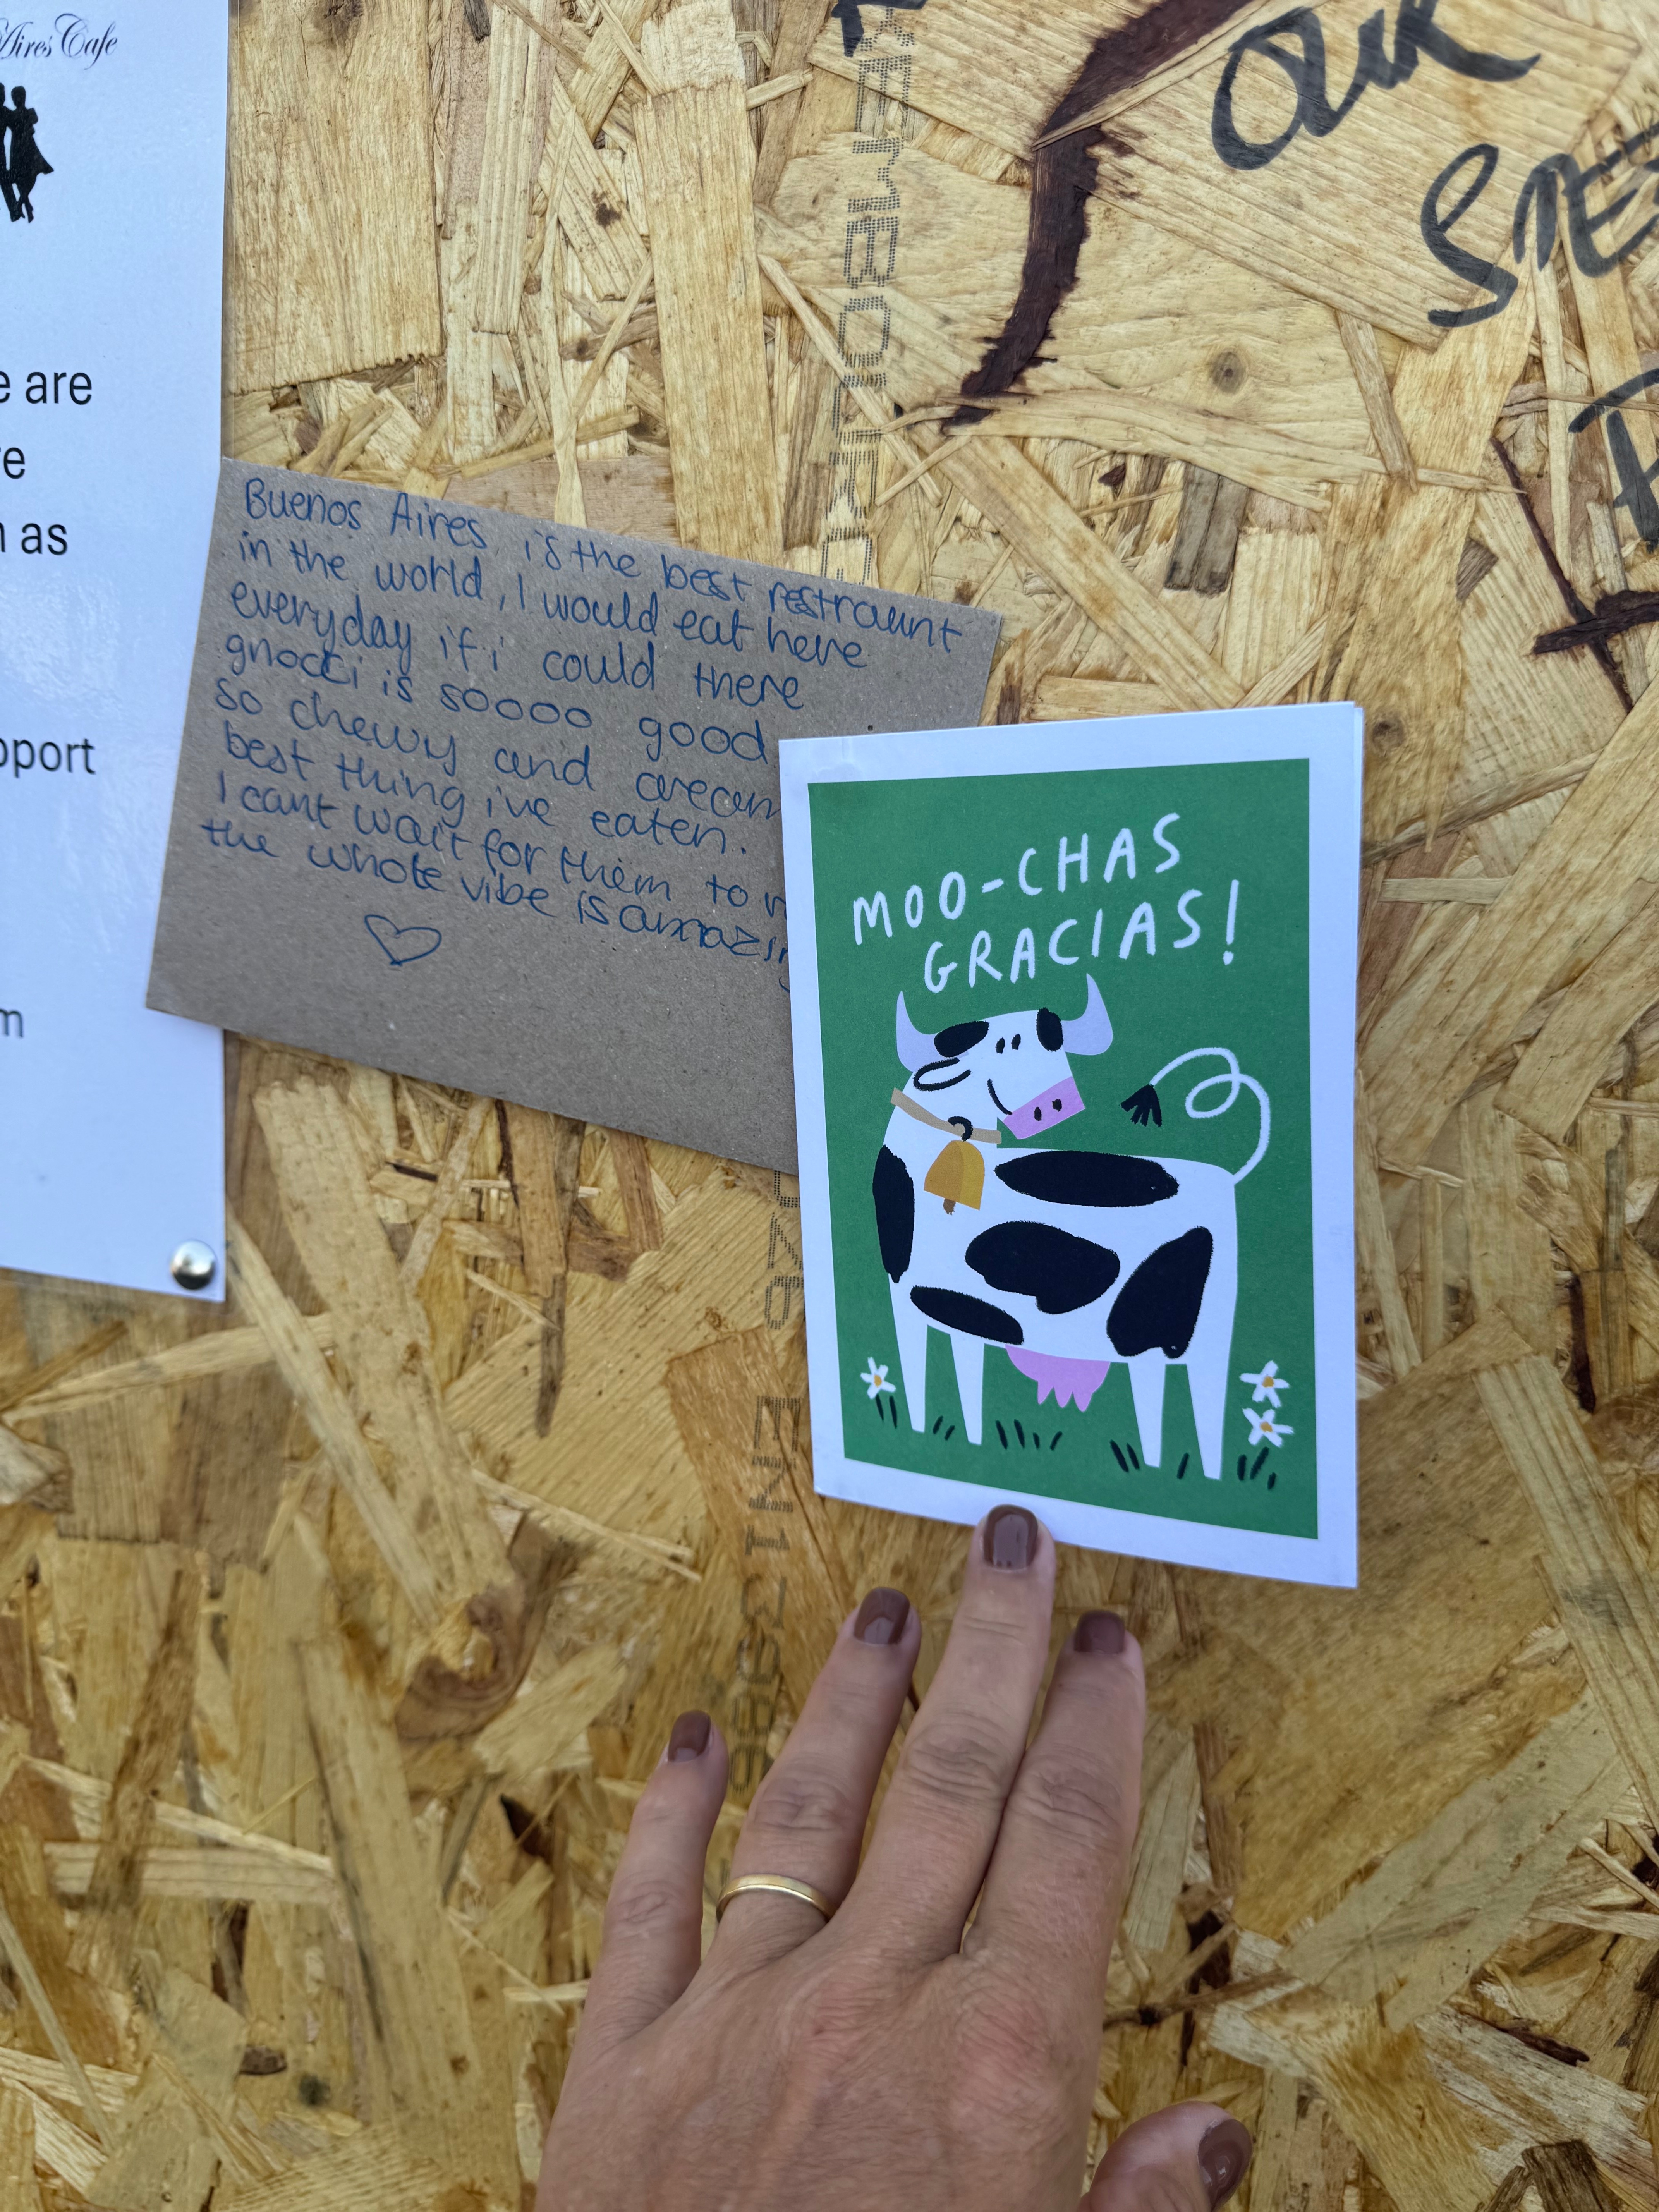 Aires Cafe
are
as
Buenos Aires is the best restraunt
in the world, I would eat here
everyday if i could there
gnocci is soooo good
so chewy and
best thing i've eaten.
I cant wait for them to
the whole vibe is
MOO-CHAS
GRACIAS!
OUR